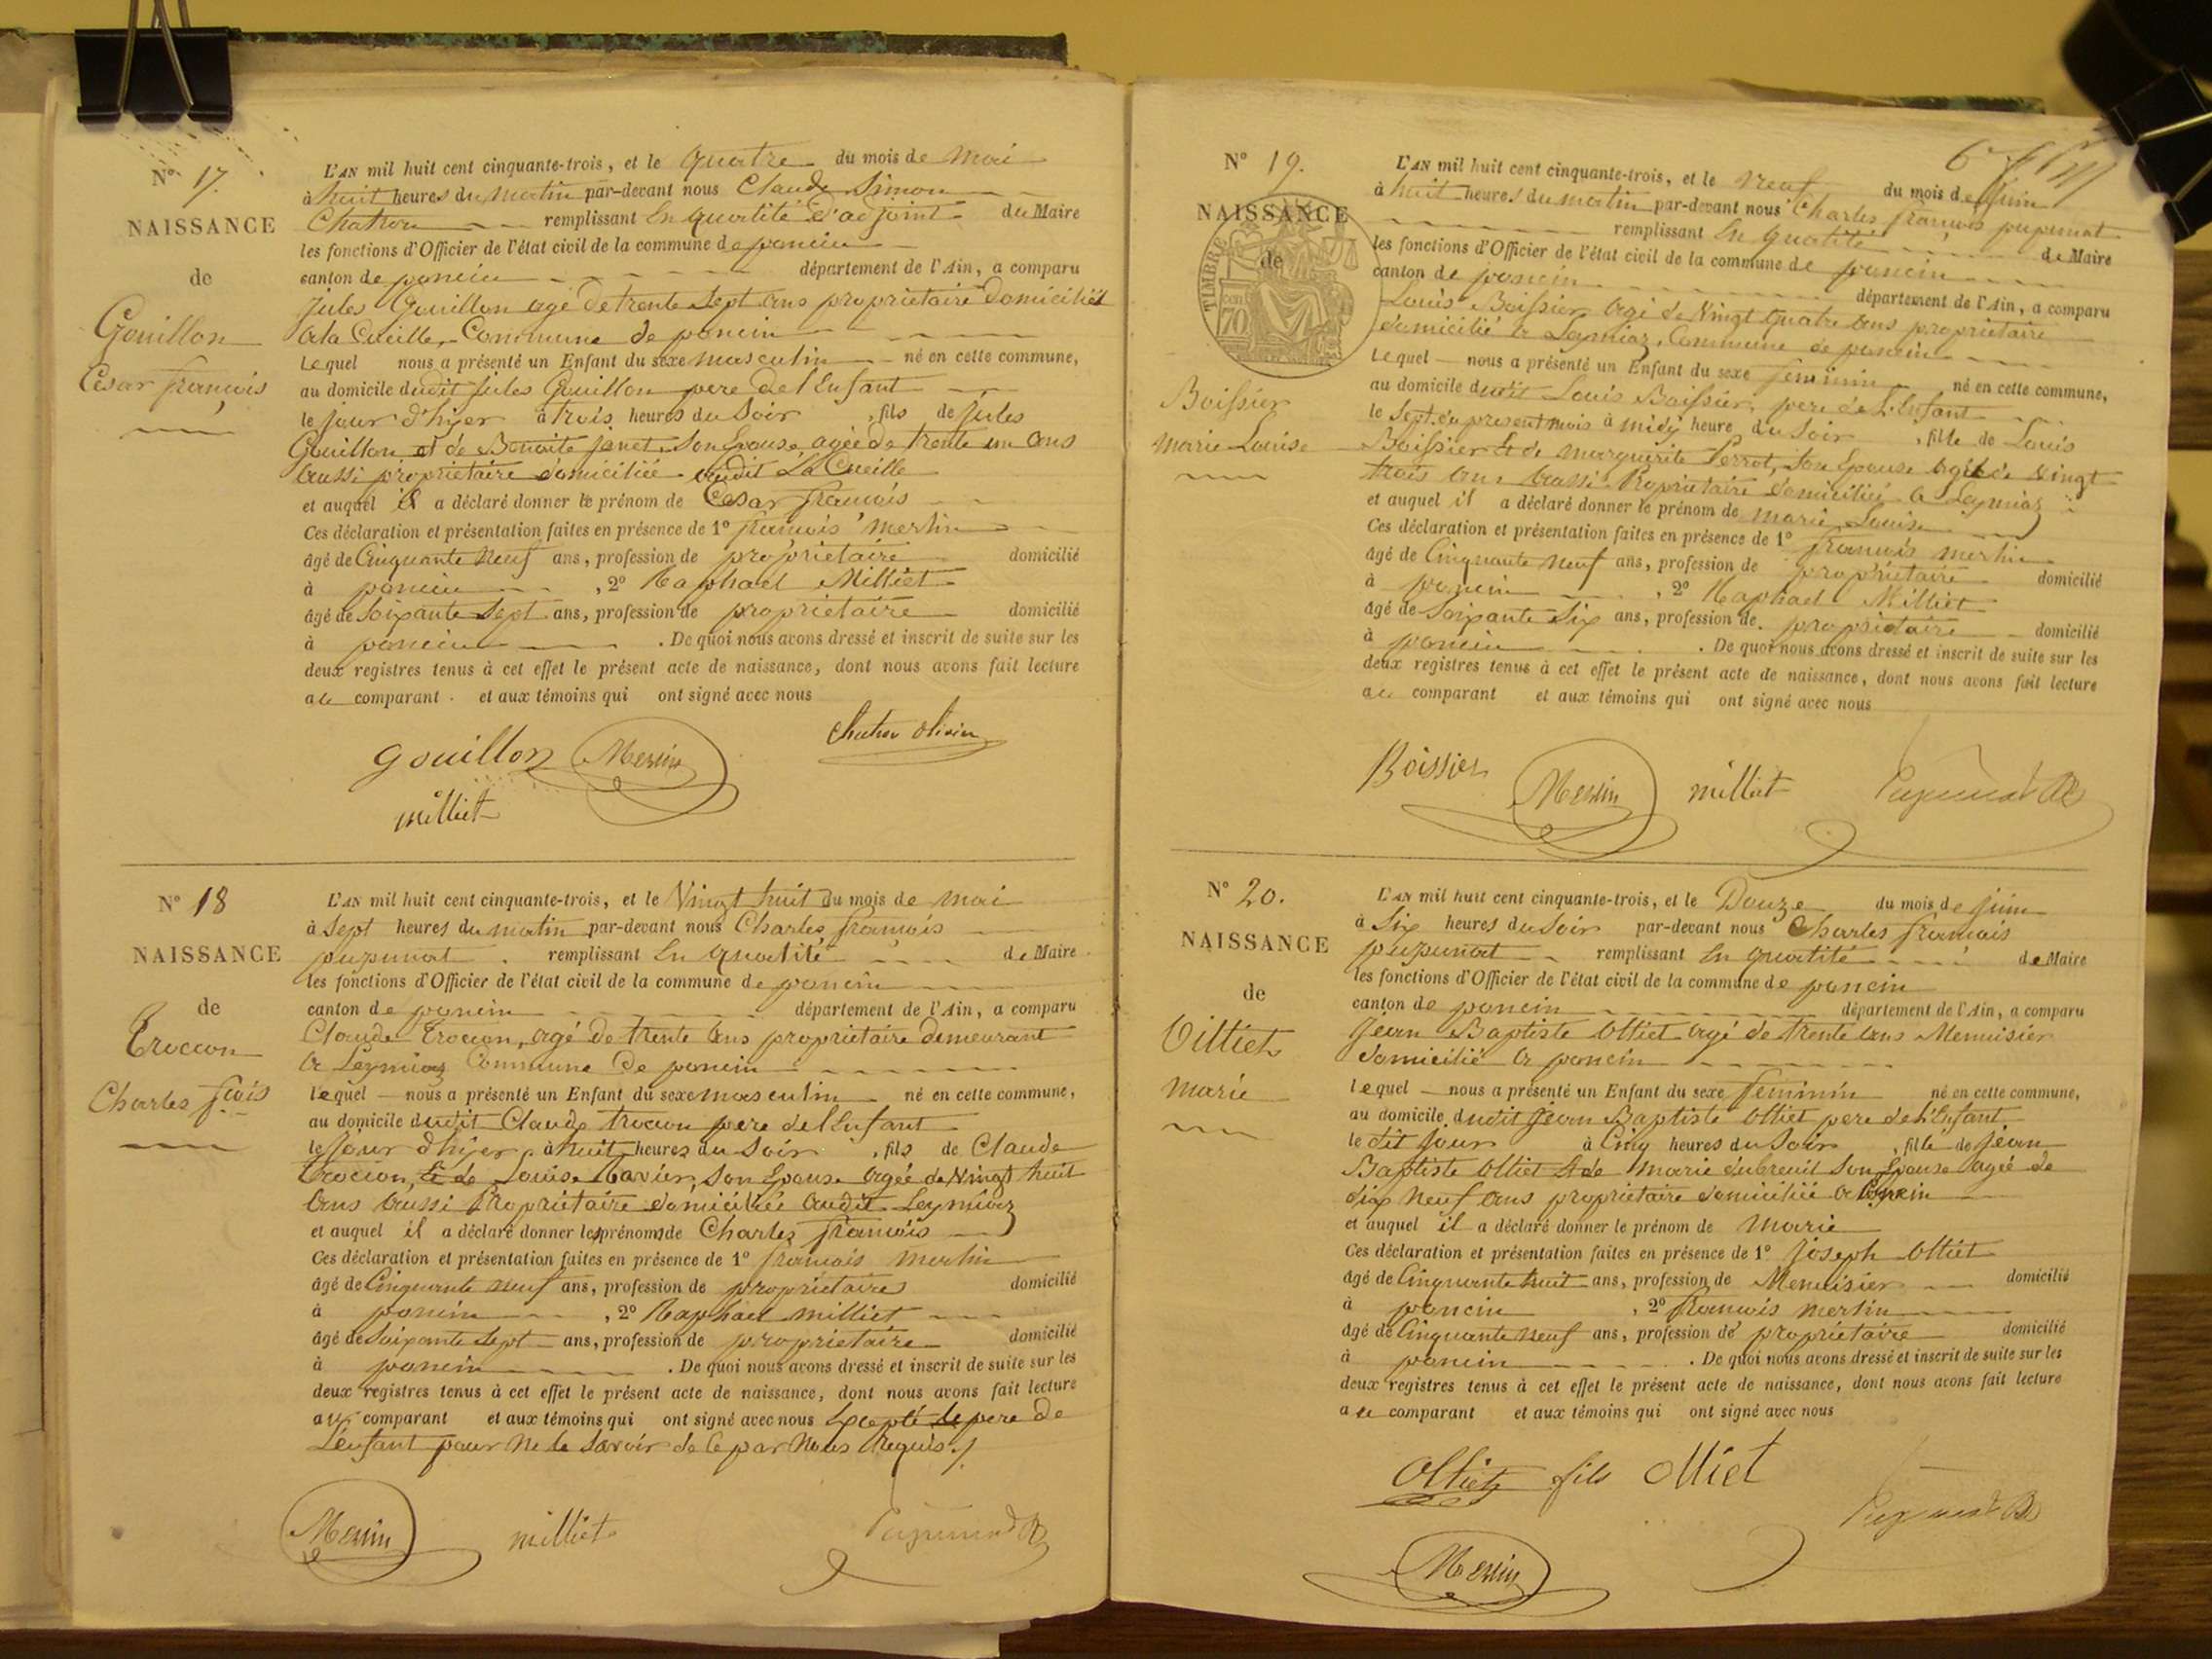 N° 17.
NAISSANCE
de
Gouillon
Cesar françois
L'AN mil huit cent cinquante-trois, et le quatre du mois de mai
à huit heures du matin par-devant nous Claude Simon
Chatron remplissant En qualité d'adjoint du Maire
les fonctions d'Officier de l'état civil de la commune de poncin
canton de poncin département de l'Ain, a comparu
Jules Gouillon agé de trente sept ans propriétaire domicilié
a la Cueille, Commune de poncin
Lequel nous a présenté un Enfant du sexe masculin né en cette commune,
au domicile dudit Jules Gouillon pere de l'Enfant
le jour d'hyer à trois heures du Soir, fils de Jules
Gouillon et de Benoite janet Son Epouse, agée de trente un ans
aussi propriétaire domiciliée audit La Cueille
et auquel il a déclaré donner le prénom de Cesar francois
Ces déclaration et présentation faites en présence de 1° francois merlin
âgé de Cinquante neuf ans, profession de propriétaire domicilié
à poncin, 2° Raphael Milliet
âgé de Soixante Sept ans, profession de propriétaire domicilié
à poncin. De quoi nous avons dressé et inscrit de suite sur les
deux registres tenus à cet effet le présent acte de naissance, dont nous avons fait lecture
au comparant et aux témoins qui ont signé avec nous
gouillon Merlin
milliet
N° 18
NAISSANCE
de
Trocon
Charles fçois
L'AN mil huit cent cinquante-trois, et le Vingt huit du mois de mai
à Sept heures du matin par-devant nous Charles francois
pupunat. remplissant En qualité de Maire
les fonctions d'Officier de l'état civil de la commune de poncin
canton de poncin département de l'Ain, a comparu
Claude Trocon, agé de trente ans propriétaire demeurant
a Leymiaz Commune de poncin
lequel nous a présenté un Enfant du sexe masculin né en cette commune,
au domicile dudit Claude trocon pere de l'Enfant
le Jour d'hyer à huit heures du Soir, fils de Claude
Trocon, Et de Louise Son Epouse agée de Vingt huit
ans aussi Propriétaire domiciliée audit Leymiaz
et auquel il a déclaré donner les prénoms de Charles francois
Ces déclaration et présentation faites en présence de 1° francois merlin
âgé de Cinquante neuf ans, profession de propriétaire domicilié
à poncin, 2° Raphael milliet
âgé de Soixante Sept ans, profession de propriétaire domicilié
à poncin. De quoi nous avons dressé et inscrit de suite sur les
deux registres tenus à cet effet le présent acte de naissance, dont nous avons fait lecture
au comparant et aux témoins qui ont signé avec nous Excepté le pere de
L'enfant pour ne le Savoir de Ce par Nous Requis./.
Merlin milliet
N° 19.
NAISSANCE
de
TIMBRE
70
Boissier
marie Louise
L'AN mil huit cent cinquante-trois, et le neuf du mois de Juin
à huit heures du matin par-devant nous Charles françois pupunat
remplissant En qualité de Maire
les fonctions d'Officier de l'état civil de la commune de poncin
canton de poncin département de l'Ain, a comparu
Louis Boissier agé de Vingt quatre ans propriétaire
domicilié a Leymiaz, Commune de poncin
Lequel nous a présenté un Enfant du sexe feminin né en cette commune,
au domicile dudit Louis Boissier, pere de L'Enfant
le Sept du present mois à midy heure du Soir, fille de Louis
Boissier Et de Marguerite Perrot, Son Epouse agée de Vingt
trois ans aussi Propriétaire domiciliée a Leymiaz
et auquel il a déclaré donner le prénom de marie Louise
Ces déclaration et présentation faites en présence de 1° francois merlin
âgé de Cinquante neuf ans, profession de propriétaire domicilié
à poncin, 2° Raphael Milliet
âgé de Soixante Six ans, profession de propriétaire domicilié
à poncin. De quoi nous avons dressé et inscrit de suite sur les
deux registres tenus à cet effet le présent acte de naissance, dont nous avons fait lecture
au comparant et aux témoins qui ont signé avec nous
Boissier Merlin milliet
N° 20.
NAISSANCE
de
Olliet
marie
L'AN mil huit cent cinquante-trois, et le Douze du mois de juin
à Six heures du Soir par-devant nous Charles francois
pupunat remplissant En qualité de Maire
les fonctions d'Officier de l'état civil de la commune de poncin
canton de poncin département de l'Ain, a comparu
Jean Baptiste Olliet agé de trente ans Menuisier
domicilié a poncin
lequel nous a présenté un Enfant du sexe feminin né en cette commune,
au domicile dudit Jean Baptiste Olliet pere de L'Enfant
le dit jour à Cinq heures du Soir, fille de jean
Baptiste Olliet Et de Marie dubreuil Son Epouse agée de
dix neuf ans propriétaire domiciliée a poncin
et auquel il a déclaré donner le prénom de marie
Ces déclaration et présentation faites en présence de 1° Joseph Olliet
âgé de Cinquante huit ans, profession de Menuisier domicilié
à poncin, 2° francois merlin
âgé de Cinquante neuf ans, profession de propriétaire domicilié
à poncin. De quoi nous avons dressé et inscrit de suite sur les
deux registres tenus à cet effet le présent acte de naissance, dont nous avons fait lecture
au comparant et aux témoins qui ont signé avec nous
Olliet fils Olliet
Merlin